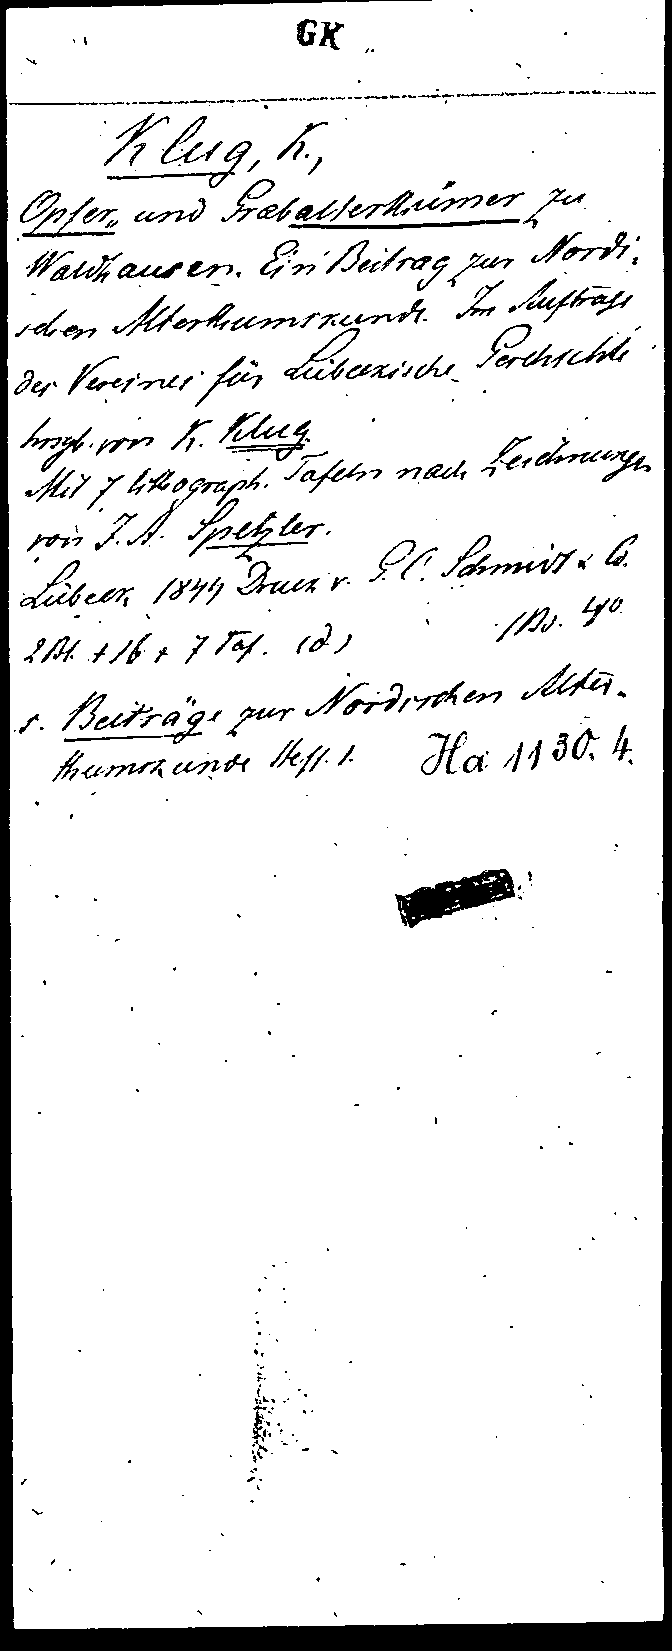 GK
Klug, K.,
Opfer- und Grabalterthümer zu
Waldhausen. Ein Beitrag zur Nordi-
schen Alterthumskunde. Im Auftrage
des Vereines für Lübeckische Geschichte
hrsgb. von K. Klug.
Mit 7 lithograph. Tafeln nach Zeichnungen
von J. A. Spetzler.
Lübeck 1844 Druck v. G. C. Schmidt & Co.
2 Bl. + 16 + 7 Taf. (d) 1 Bd. 4°
s. Beiträge zur Nordischen Alter-
thumskunde Heft. 1. Ha 1130. 4.